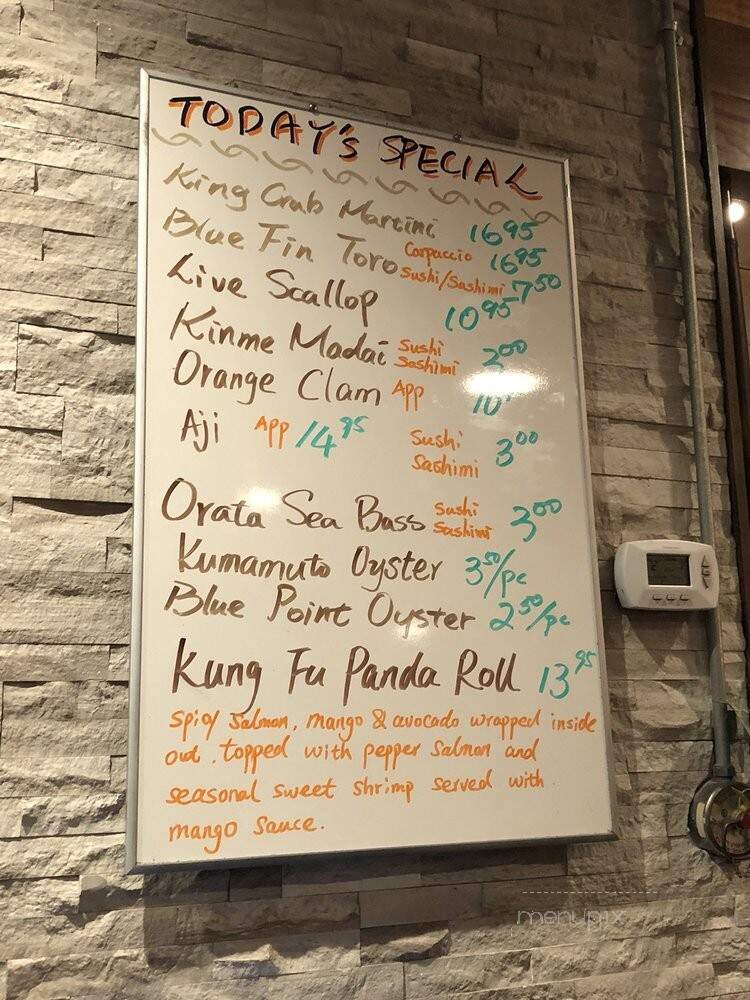 TODAY's SPECIAL
King Crab Martini 16 95
Blue Fin Toro Carpaccio 16 95
Sushi/Sashimi 7 50
Live Scallop 10 95
Kinme Madai Sushi Sashimi 3 00
Orange Clam App 10
Aji App 14 95 Sushi Sashimi 3 00
Orata Sea Bass Sushi Sashimi 3 00
Kumamuto Oyster 3 50/pc
Blue Point Oyster 2 50/pc
Kung Fu Panda Roll 13 95
spicy salmon, mango & avocado wrapped inside
out. topped with pepper salmon and
seasonal sweet shrimp served with
mango sauce.
menupix